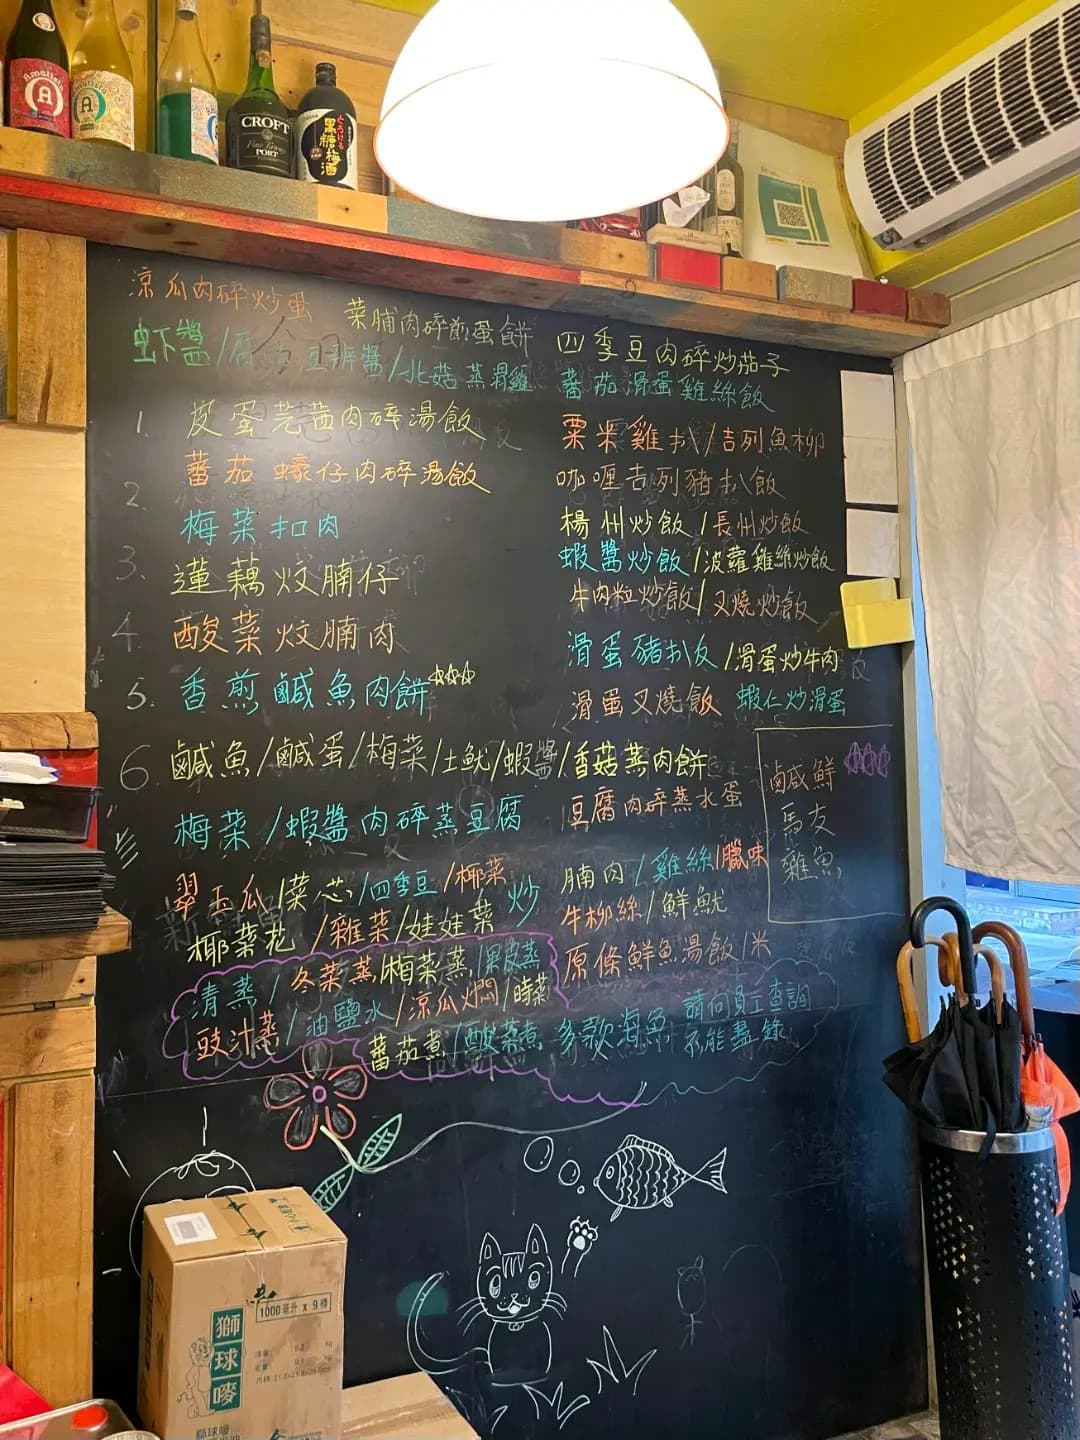 Amalista
A
Amalista
A
CROFT
Fine Tawny
PORT
とろける
黒糖梅酒
涼瓜肉碎炒蛋
菜脯肉碎煎蛋餅
虾醬/腐 豆辦醬/北菇蒸滑雞
1. 皮蛋芫茜肉碎湯飯
2. 蕃茄蠔仔肉碎湯飯
梅菜扣肉
3. 蓮藕炆腩仔
4. 酸菜炆腩肉
5. 香煎鹹魚肉餅
6. 鹹魚/鹹蛋/梅菜/土魷/蝦醬/香菇蒸肉餅
梅菜/蝦醬肉碎蒸豆腐
翠玉瓜/菜芯/四季豆/椰菜
椰菜花/雜菜/娃娃菜 炒
清蒸/冬菜蒸/梅菜蒸/果皮蒸
豉汁蒸/油鹽水/涼瓜焖/時菜
蕃茄煮/酸菜煮 多款海魚 請向員工查詢
不能盡錄
四季豆肉碎炒茄子
蕃茄滑蛋雞絲飯
粟米雞扒/吉列魚柳
咖喱吉列豬扒飯
楊州炒飯/長州炒飯
蝦醬炒飯/波蘿雞絲炒飯
牛肉粒炒飯/叉燒炒飯
滑蛋豬扒反/滑蛋炒牛肉
滑蛋叉燒飯 蝦仁炒滑蛋
豆腐肉碎蒸水蛋
腩肉/雞絲/臘味
牛柳絲/鮮魷
原條鮮魚湯飯/米
鹹鮮
馬友
雜魚
1000毫升 x 9樽
獅球嘜
獅球嘜